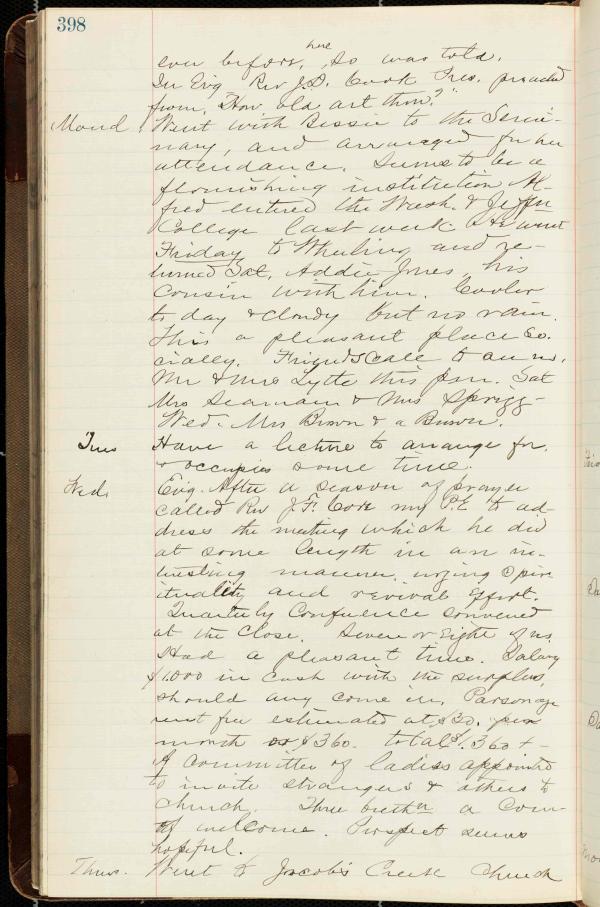 398
ever before, here so was told.
In Evg Rev J.D. Cook Pres. preached
from, "How old art thou?"
Mond Went with Bessie to the Semi-
nary, and arranged for her
attendance. Seems to be a
flourishing institution. Al-
fred entered the Wash. & Jeffn
College last week & he went
Friday to Wheeling and re-
turned Sat, Addie Jones, his
cousin with him. Cooler
to day & cloudy but no rain.
This a pleasant place So-
cially. Friends call to an us.
Mr & Mrs Lytte this p.m. Sat
Mrs Seamain & Mrs Sprigg-
Wed. Mrs Brown & a Brown.
Tues Have a lecture to arrange for.
& occupies some time.
Wed. Evg. After a season of prayer
called Rev J.F. Core my P.E. to ad-
dress the meeting which he did
at some length in an in-
teresting manner, urging Spir-
ituality and revival effort.
Quarterly Conference convened
at the close. Seven or Eight of us.
Had a pleasant time. Salary
$1,000 in cash with the surplus
should any come in. Parsonage
rent free estimated at $30. per
month or $360. total $1.360 + -
A committee of ladies appointed
to invite strangers & others to
church. Three brethn a Com-
of welcome. Prospect seems
hopeful.
Thurs. Went to Jacob's Creek Church